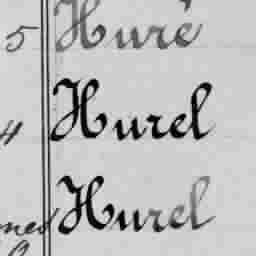 5 Huré
4 Hurel
Hurel